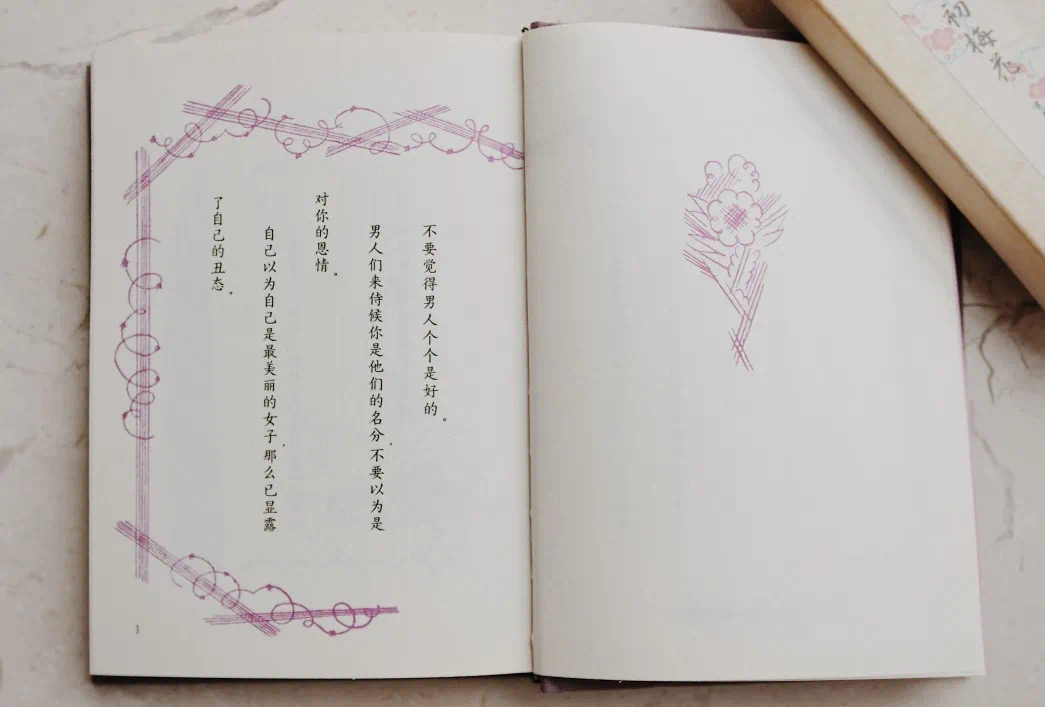 初梅花
不要觉得男人个个是好的。
男人们来侍候你是他们的名分,不要以为是
对你的恩情。
自己以为自己是最美丽的女子,那么已显露
了自己的丑态。
1